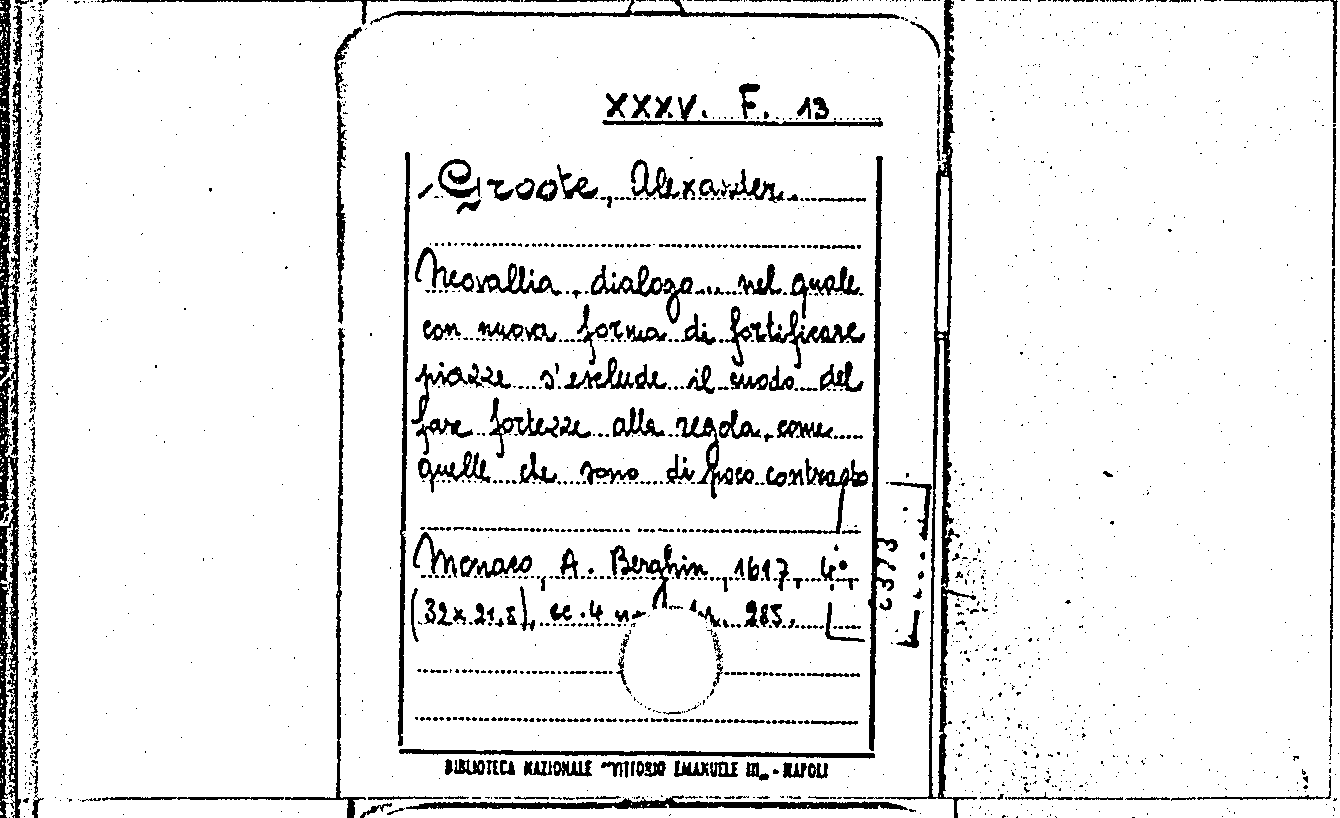 XXXV. F. 13
Groote, Alexander.
Neovallia, dialogo... nel quale
con nuova forma di fortificare
piazze s'esclude il modo del
fare fortezze alla regola, come
quelle che sono di poco contrasto
Monaco, A. Berghin, 1617, 4°,
(32x21,5), cc. 4 285.
2373
BIBLIOTECA NAZIONALE "VITTORIO EMANUELE III" - NAPOLI